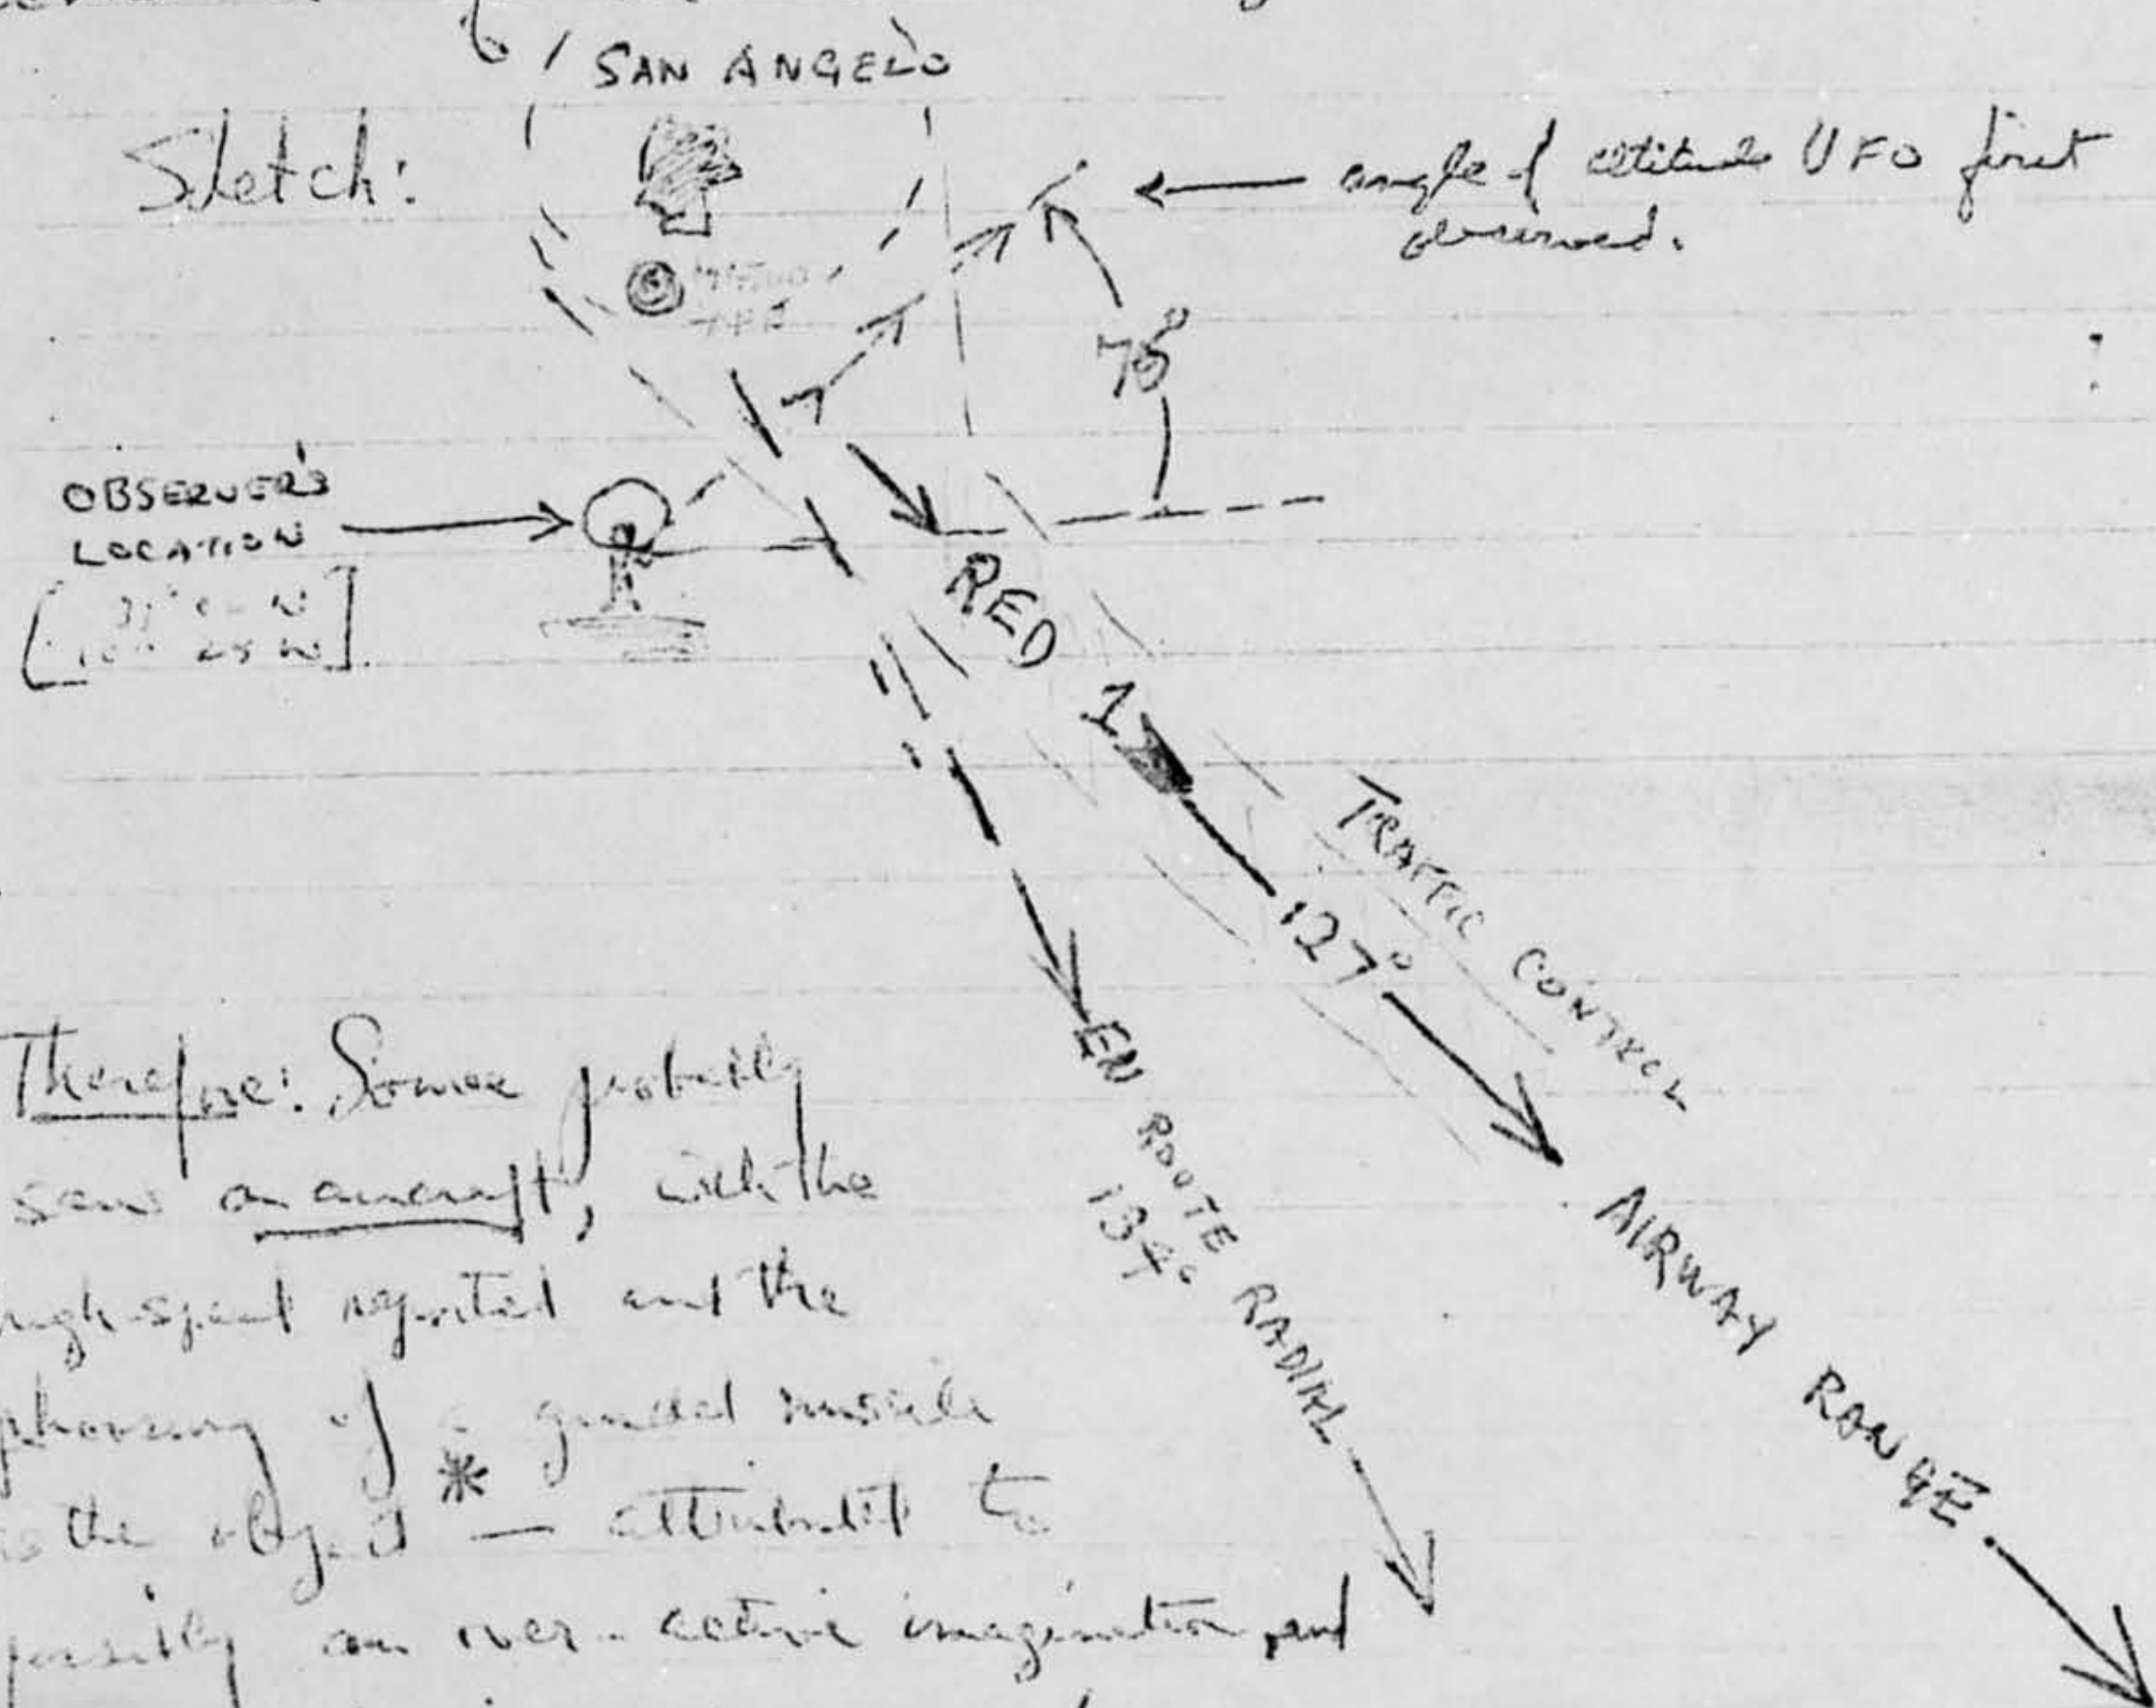 SAN ANGELO
Sketch:
angle of altitude UFO first
observed.
75°
OBSERVER'S
LOCATION
RED
127°
TRAFFIC CONTROL
AIRWAY RANGE
EN ROUTE RADIAL
134°
Therefore: Source probably
saw an aircraft, with the
high-speed reported and the
of a guided missile
the object * — attributed to
possibly an over-active imagination and